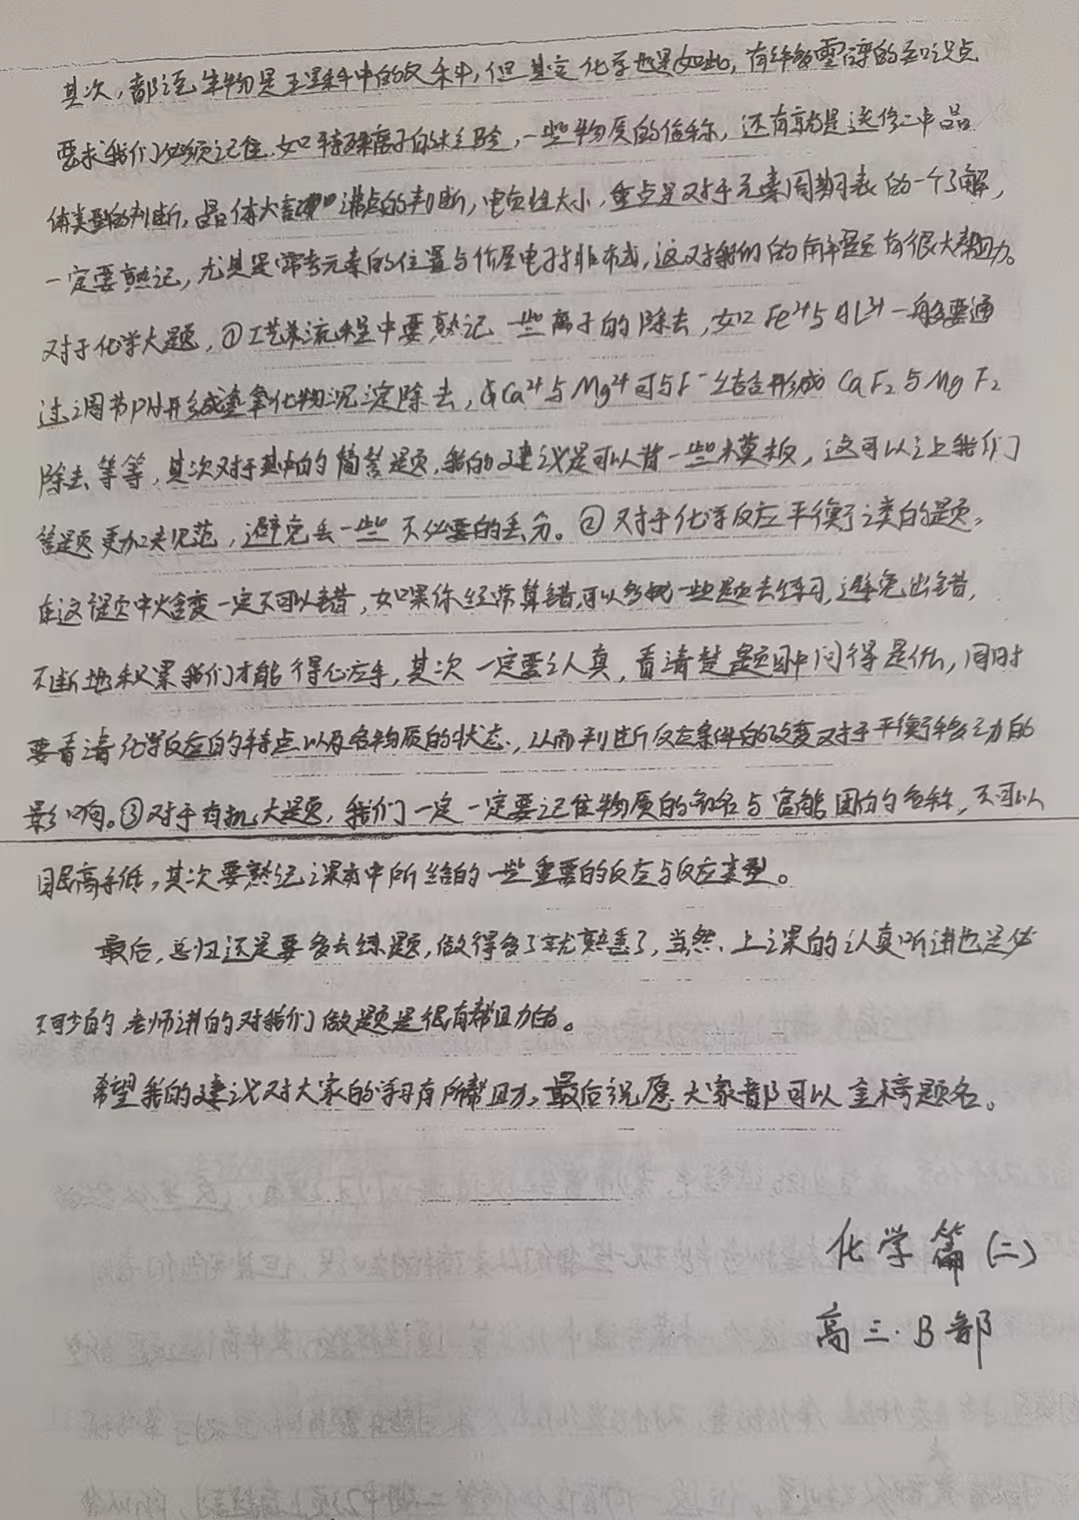 其次，都说生物是理科中的文科，但其实化学也是如此，有许多零碎的知识点
要求我们必须记住，如特殊离子的检验，一些物质的俗称，还有就是选修二中晶
体类型的判断，晶体沸点的判断，电负性大小，重点是对于元素周期表的一个了解，
一定要熟记，尤其是常考元素的位置与价层电子排布式，这对我们的解题有很大帮助。
对于化学大题，①工艺流程中要熟记一些离子的除去，如Fe³⁺与Al³⁺一般要通
过调节PH形成氢氧化物沉淀除去，Ca²⁺与Mg²⁺可与F⁻结合形成CaF₂与MgF₂
除去等等，其次对于其中的简答题，我的建议是可以背一些模板，这可以让我们
答题更加规范，避免丢一些不必要的丢分。②对于化学反应平衡类的题，
在这题中焓变一定不可以错，如果你经常算错，可以多找一些题去练习，避免出错，
不断地积累我们才能得心应手，其次一定要认真，看清楚题目中问得是什么，同时
要看清化学反应的特点以及各物质的状态，从而判断反应条件的改变对于平衡移动的
影响。③对于有机大题，我们一定一定要记住物质的命名与官能团的名称，不可以
眼高手低，其次要熟记课本中所给的一些重要的反应与反应类型。
最后，总归还是要多去练题，做得多了就熟悉了，当然，上课的认真听讲也是必
不可少的，老师讲的对我们做题是很有帮助的。
希望我的建议对大家的学习有所帮助，最后祝愿大家都可以金榜题名。
化学篇(二)
高三·B部